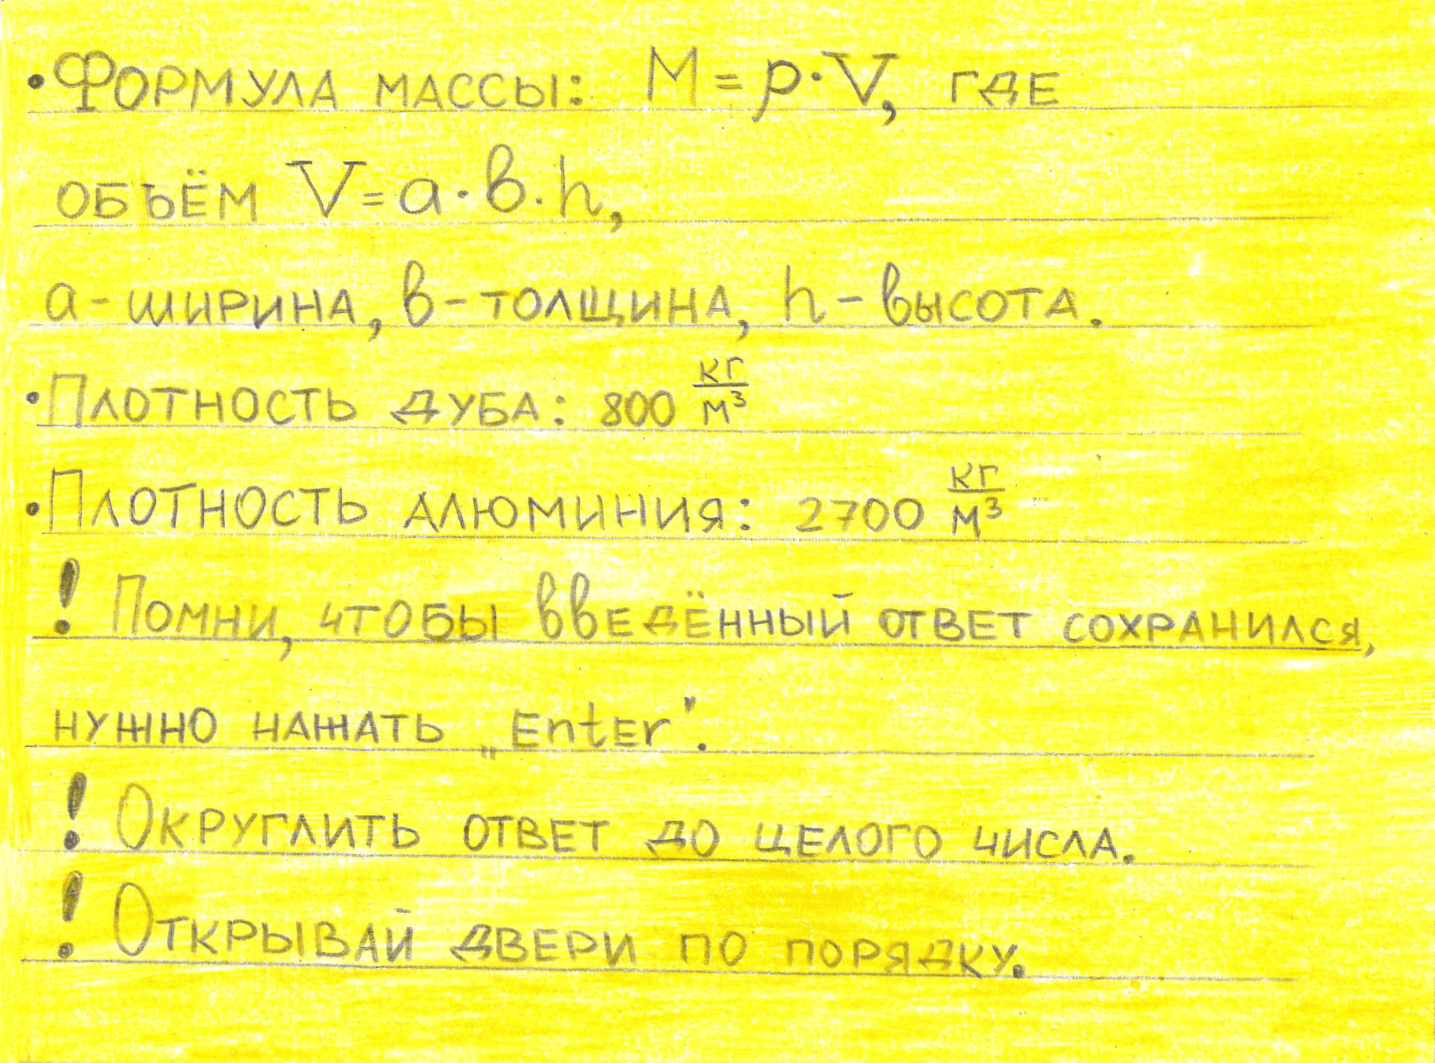 • Формула массы: M = ρ · V, где
объём V = a · в · h,
а - ширина, в - толщина, h - высота.
• Плотность дуба: 800 кг/м³
• Плотность алюминия: 2700 кг/м³
! Помни, чтобы введённый ответ сохранился,
нужно нажать „Enter".
! Округлить ответ до целого числа.
! Открывай двери по порядку.